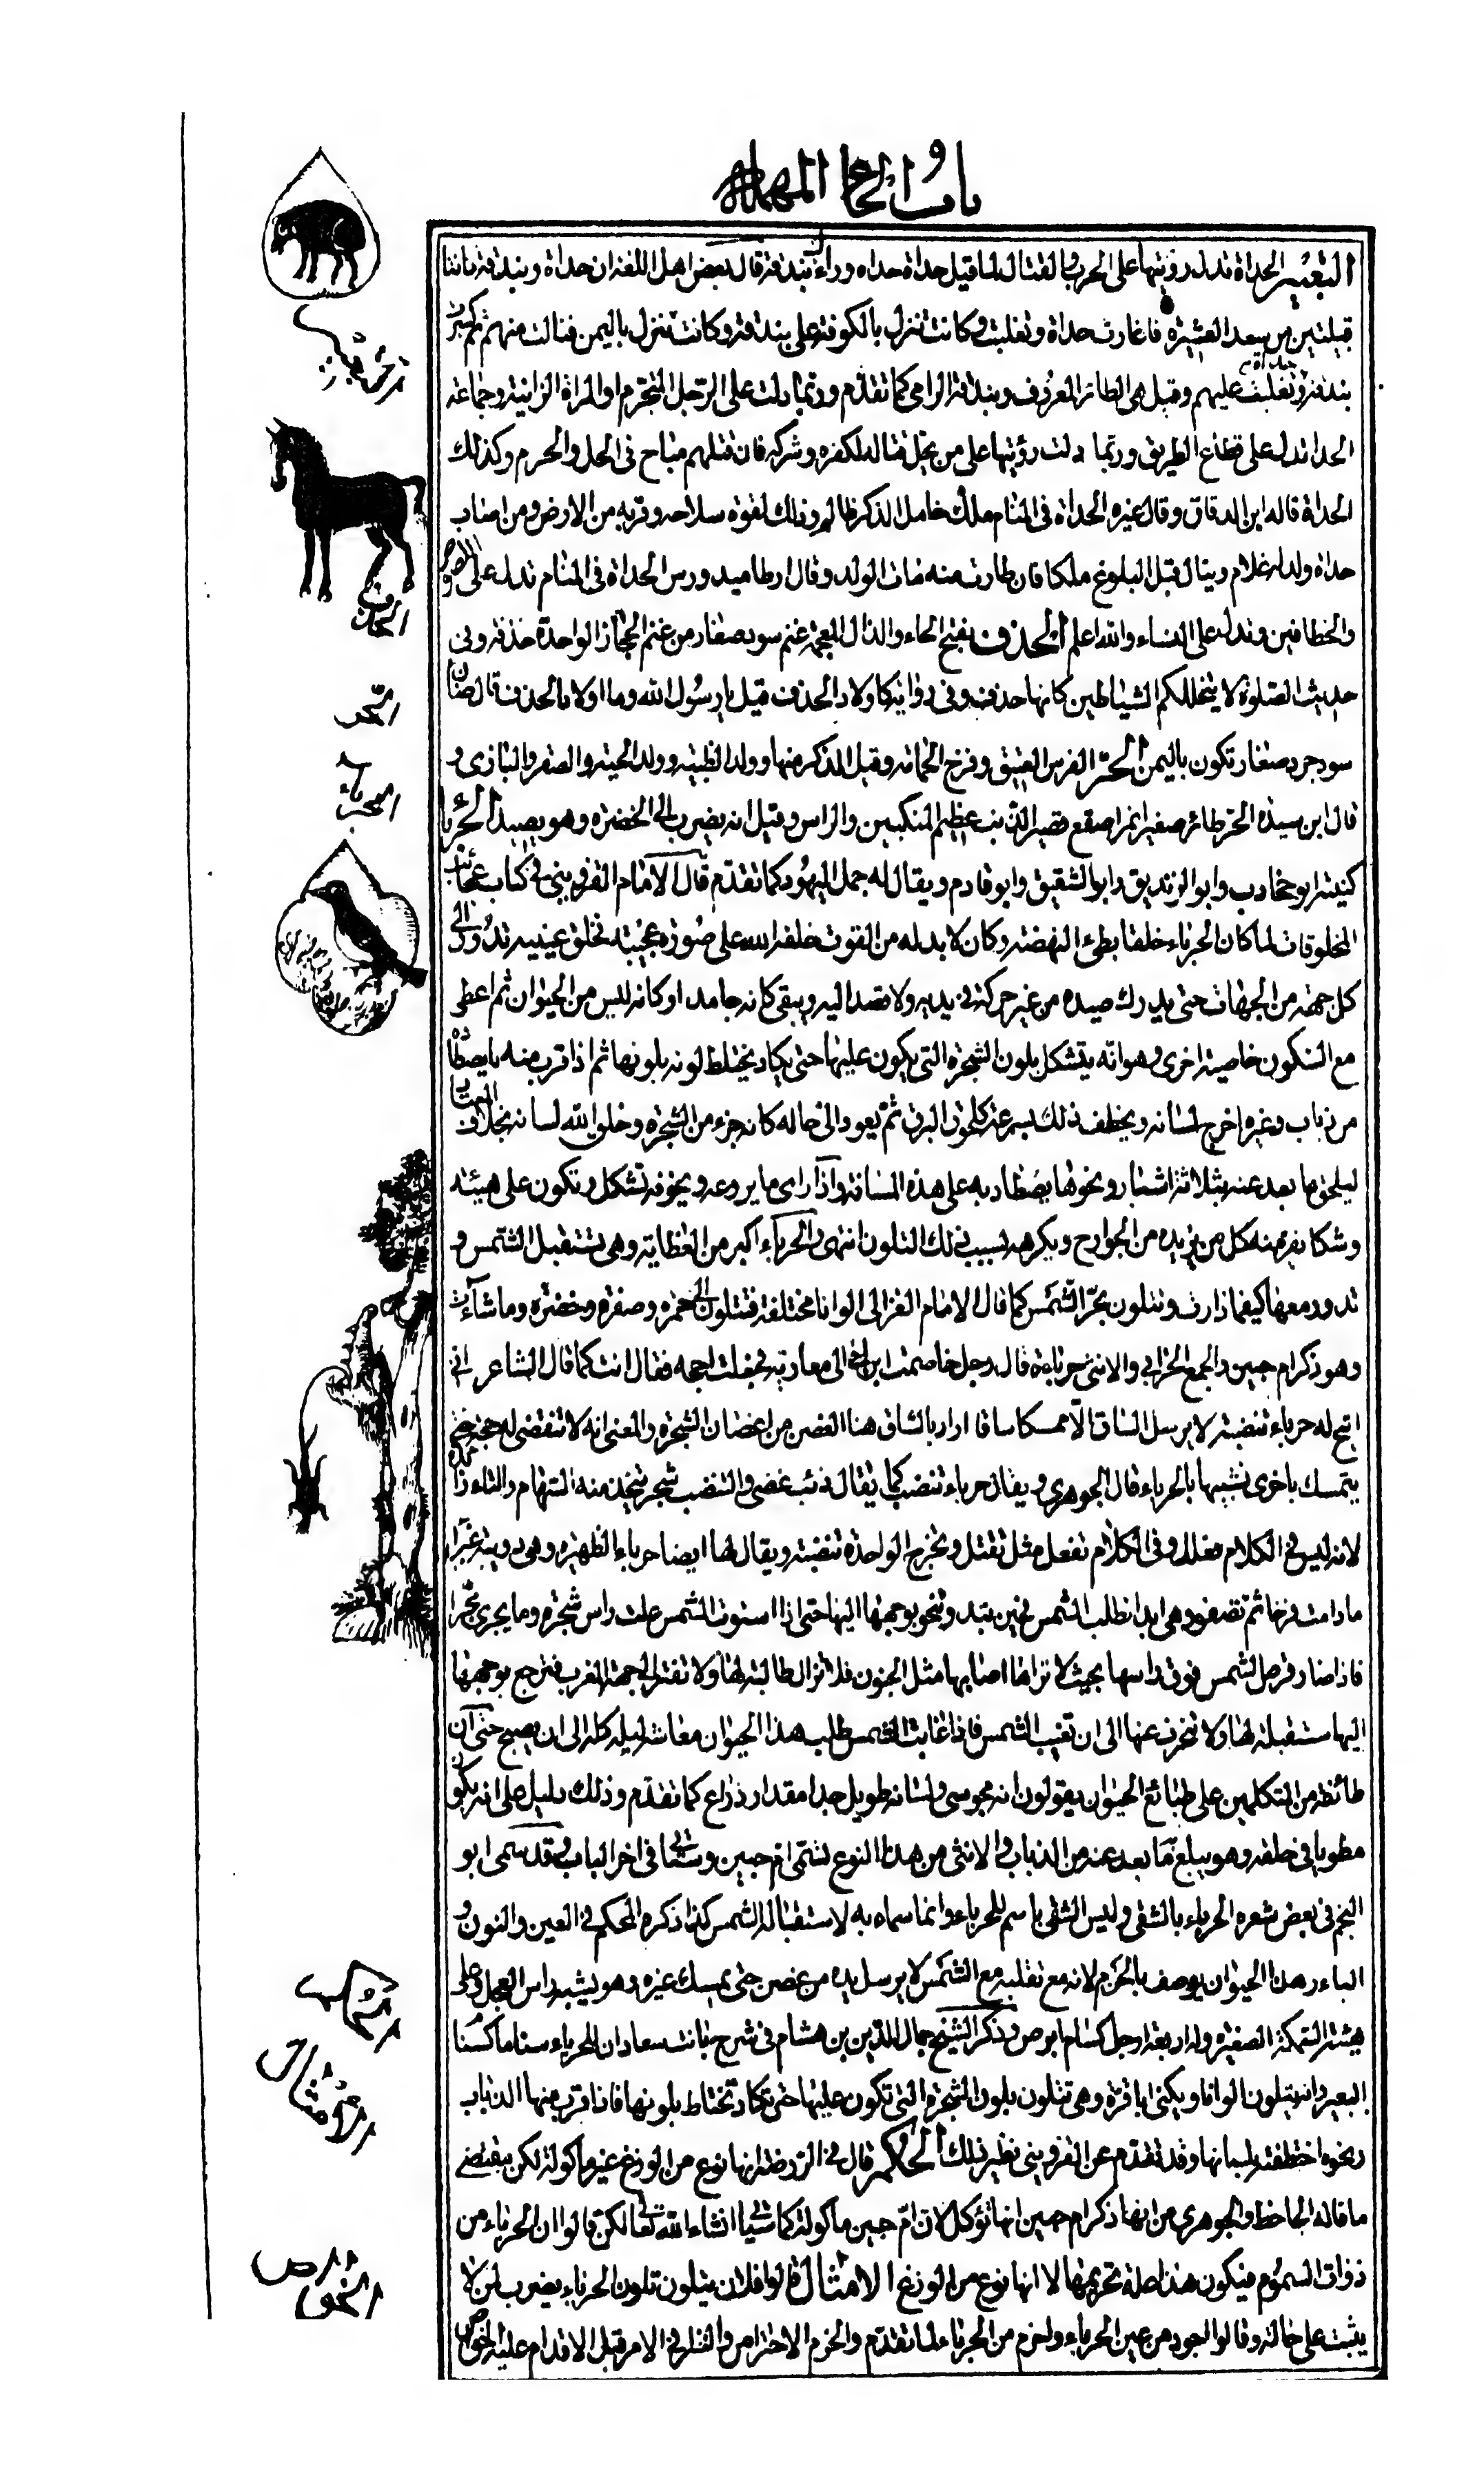 باب الحاء المهملة
التعبير الحداة تدل رؤيتها على الحرب والقتال لما قيل حداة حداه وراءك بندقة قال بعض اهل اللغة ان حداة وبندقة كانتا
قبيلتين من سعد العشيرة فاغارت حداة وتغلبت وكانت تنزل بالكوفة على بندقة وكانت تنزل باليمن فنالت منهم ثم كسرت
بندقة وتغلبت عليهم وقيل هى الطائر المعروف وبندقة الرامى كما تقدم وربما دلت على الرجل المتجرم او المراة الزانية وجماعة
الحدا تدل على قطاع الطريق وربما دلت رؤيتها على من يحل قتاله لكفره وشركه فان قتلهم مباح فى الحل والحرم وكذلك
الحداة قاله ابن الدقاق وقال غيره الحداة فى المنام ملك خامل الذكر ظالم وذلك لقوة سلاحه وقربه من الارض ومن اصاب
حداة ولد له غلام وينال قبل البلوغ ملكا فان طارت منه مات الولد وقال ارطاميدورس الحداة فى المنام تدل على اللصوص
والخطافين وتدل على النساء والله اعلم الحذف بفتح الحاء والذال المعجمة غنم سود صغار من غنم الحجاز الواحدة حذفة وفى
حديث الصلوة لا يتخللكم الشياطين كانها حذف وفى رواية كاولاد الحذف قيل يا رسول الله وما اولاد الحذف قال ضان
سود جرد صغار تكون باليمن الحر الفرس العتيق وفرخ الحمامة وقيل الذكر منها وولد الظبية وولد الحية والصقر والبازى و
قال ابن سيدة الحر طائر صغير انمر اصقع قصير الذنب عظيم المنكبين والراس وقيل انه يضرب الى الخضرة وهو يصيد الحرباء
كنيته ابو جخادب وابو الزنديق وابو الشقيق وابو قادم ويقال له جمل اليهود كما تقدم قال الامام القزوينى فى كتاب عجائب
المخلوقات لما كان الحرباء خلقا بطئ النهضة وكان لا بد له من القوت خلقه الله على صورة عجيبة فخلق عينيه تدور الى
كل جهة من الجهات حتى يدرك صيده من غير حركة فى يديه ولا قصد اليه ويبقى كانه جامد او كانه ليس من الحيوان ثم اعطى
مع السكون خاصية اخرى وهو انه يتشكل بلون الشجرة التى يكون عليها حتى يكاد يختلط لونه بلونها ثم اذا قرب منه ما يصطاده
من ذباب وغيره اخرج لسانه ويخطف ذلك بسرعة كلحوق البرق ثم يعود الى حاله كانه جزء من الشجرة وخلق الله لسانه بخلاف المعتاد
ليلحق ما بعد عنه بثلاثة اشبار ونحوها يصطاد به على هذه المسافة واذا راى ما يروعه ويخوفه تشكل وتكون على هيئة
وشكل يفر منه كل من يريده من الجوارح ويكرهه بسبب ذلك التلون انتهى والحرباء اكبر من العظاية وهى تستقبل الشمس و
تدور معها كيفما دارت وتتلون بحر الشمس كما قال الامام الغزالى الوانا مختلفة فتتلون الى حمرة وصفرة وخضرة وما شاءت
وهو ذكر ام حبين والجمع الحرابى والانثى حرباءة قال رجل خاصمت ابن اخى الى معاوية فجعلت احجه فقال انت كما قال الشاعر انى
اتيح له حرباء تنضبة لا يرسل الساق الا ممسكا ساقا اراد بالساق هنا الغصن من اغصان الشجرة والمعنى انه لا تنقضى له حجة حتى
يتمسك باخرى تشبيها بالحرباء قال الجوهرى ويقال حرباء تنضب كما يقال ذئب غضى والتنضب شجر يتخذ منه السهام والتاء زائدة
لانه ليس فى الكلام فعلل وفى الكلام تفعل مثل تقتل وتخرج الواحدة تنضبة ويقال لها ايضا حرباء الظهيرة وهى دويبة غبراء
ما دامت فرخا ثم تصفر وهى ابدا تطلب الشمس فحين تبدو تنحو بوجهها اليها حتى اذا استوت الشمس علت راس شجرة وما يجرى مجراها
فاذا صار قرص الشمس فوق راسها بحيث لا تراها اصابها مثل الجنون فلا تزال طالبة لها ولا تفتر الى جهة الغرب فترجع بوجهها
اليها مستقبلة لها ولا تنحرف عنها الى ان تغيب الشمس فاذا غابت الشمس طلب هذا الحيوان معاشه ليله كله الى ان يصبح حتى ان
طائفة من المتكلمين على طبائع الحيوان يقولون انه مجوسى ولسانه طويل جدا مقدار ذراع كما تقدم وذلك دليل على انه يكون
مطويا فى حلقه وهو يبلغ ما بعد عنه من الذباب والانثى من هذا النوع تسمى ام حبين وستاتى فى اخر الباب وقد سمى ابو
النجم فى بعض شعره الحرباء بالشقى وليس الشقى باسم للحرباء وانما سماه به لاستقباله الشمس كذا ذكره المحكم فى العين والنون و
الباء وهذا الحيوان يوصف بالحزم لانه مع تقلبه مع الشمس لا يرسل يده من غصن حتى يمسك غيره وهو يشبه راس العجل وعلى
هيئة السمكة الصغيرة وله اربعة ارجل كسام ابرص وذكر الشيخ جمال الدين بن هشام فى شرح بانت سعاد ان للحرباء سناما كسنام
البعير وانه يتلون الوانا ويكنى ابا قرة وهى تتلون بلون الشجرة التى تكون عليها حتى تكاد تختلط بلونها فاذا قرب منها الذباب
ونحوه اختطفته بلسانها وقد تقدم عن القزوينى نظير ذلك الحكم قال فى الروضة انها نوع من الوزغ غير ماكولة لكن مقتضى
ما قاله الجاحظ والجوهرى من انها ذكر ام حبين انها تؤكل لان ام حبين ماكولة كما سياتى انشاء الله تعالى لكن قالوا ان الحرباء من
ذوات السموم فيكون هذا علة تحريمها لا انها نوع من الوزغ الامثال قالوا فلان يتلون تلون الحرباء يضرب لمن لا
يثبت على حالة وقالوا اجود من عين الحرباء واحزم من الحرباء لما تقدم والحزم الاحتراس والنظر فى الامر قبل الاقدام عليه الخواص
الحذف
الحر
الحرباء
الحكم
الامثال
الخواص